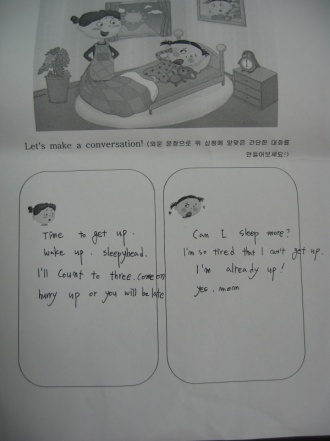 Let's make a conversation! (외운 문장으로 위 상황에 알맞은 간단한 대화를
만들어보세요!)
Time to get up.
wake up. sleepyhead.
I'll count to three. come on
hurry up or you will be late
Can I sleep more?
I'm so tired that I can't get up.
I'm already up!
yes. mom